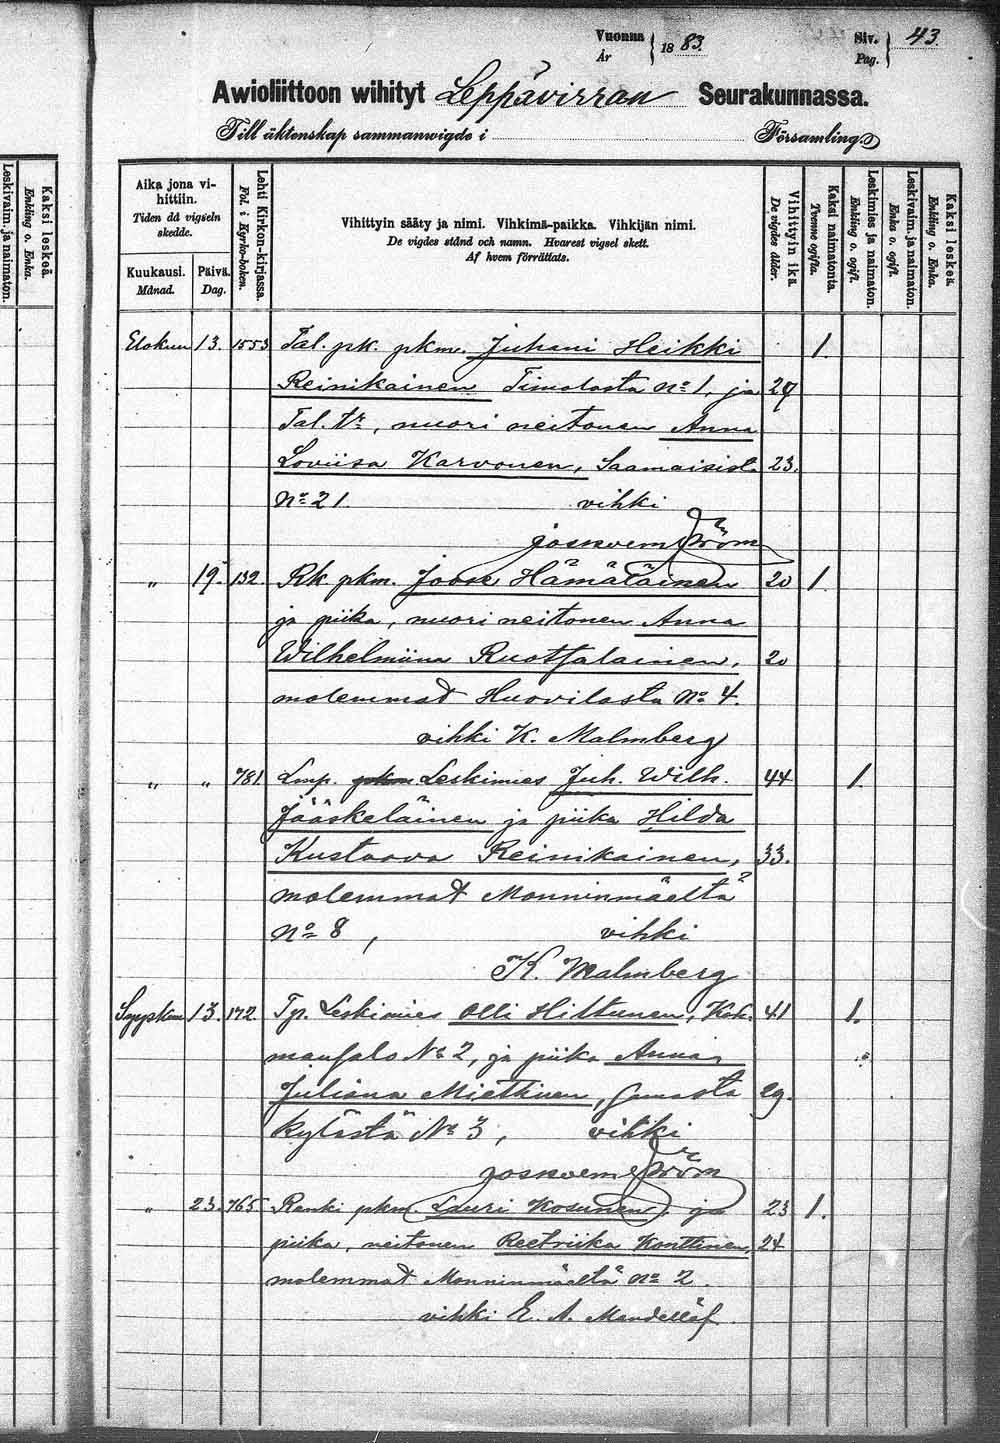 Vuonna
År
1883.
Siv.
Pag.
43.
Awioliittoon wihityt Leppävirran Seurakunnassa.
Till äktenskap sammanwigde i Församling.
Aika jona vi-
hittiin.
Tiden då vigseln
skedde.
Kuukausi.
Månad.
Päivä.
Dag.
Lehti Kirkon-kirjassa.
Fol. i Kyrko-boken.
Vihittyin sääty ja nimi. Vihkimä-paikka. Vihkijän nimi.
De vigdes stånd och namn. Hvarest vigsel skett.
Af hvem förrättats.
Vihittyin ikä
De vigdes ålder.
Kaksi naimatonta.
Tvenne ogifta.
Leskimies ja naimaton.
Enkling o. ogift.
Leskivaim. ja naimaton.
Enka o. ogift.
Kaksi leskeä.
Enkling o. Enka.
Leskivaim. ja naimaton.
Kaksi leskeä.
Enkling o. Enka.
Elokuu 13. 1553 Tal. pk. pkm. Juhani Heikki 1.
Reinikainen Timolasta No 1, ja 27
Tal. tr, nuori neitonen Anna
Loviisa Karvonen, Saamaisist. 23.
No 21. vihki
" 19. 132 Rk pkm. Joose Hämäläinen 20 1.
ja piika, nuori neitonen Anna
Wilhelmiina Ruottalainen, 20
molemmat Huovilasta No 4.
vihki K. Malmberg
" " 781. Lmp. Leskimies Juh. Wilh. 44 1.
Jääskeläinen ja piika Hilda
Kustaava Reinikainen, 33.
molemmat Monninmäeltä
No 8, vihki
K. Malmberg
Syyskuu 13. 172. Tp. Leskimies Olli Hittunen, Kot- 41 1.
No 2, ja piika Anna
Juliana Miettinen, 29.
kylästä No 3, vihki
" 23. 765 Renki pkm. Lauri Kosunen ja 23 1.
piika, neitonen Reetriika Konttinen, 24
molemmat Monninmäeltä No 2.
vihki E. A. Mandellöf